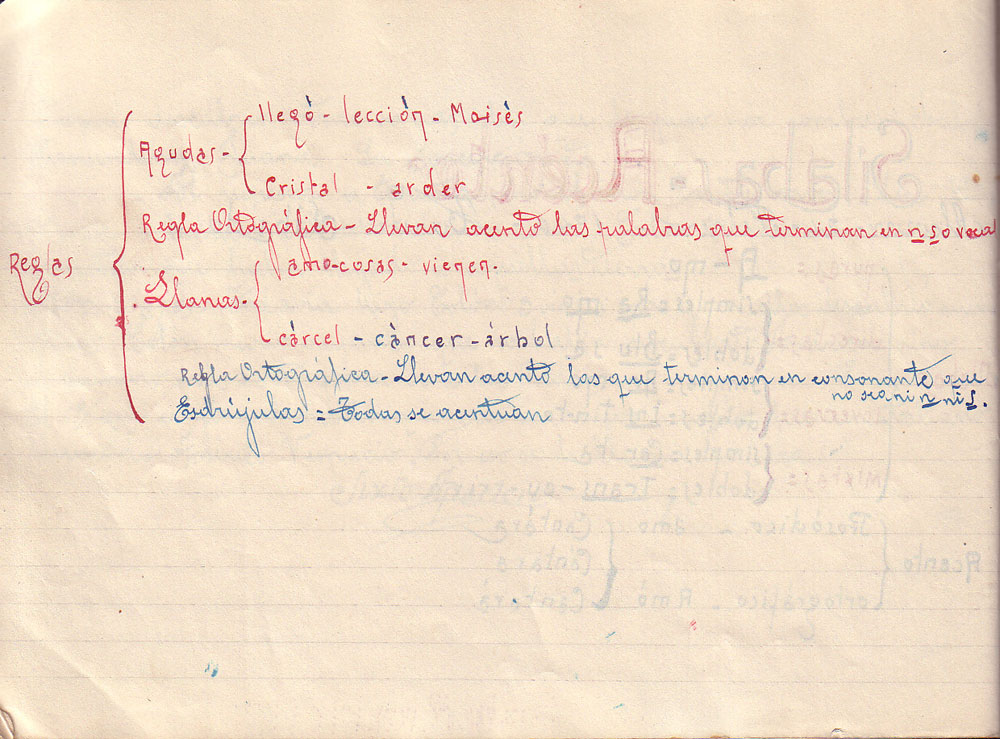 llegó - lección - Moisés
Agudas -
Cristal - arder
Regla Ortográfica - Llevan acento las palabras que terminan en n s o vocal
Reglas
amo-cosas - vienen.
Llanas -
cárcel - càncer - árbol
Regla Ortográfica - Llevan acento las que terminan en consonante que
no sea ni n ni s.
Esdrújulas = Todas se acentúan